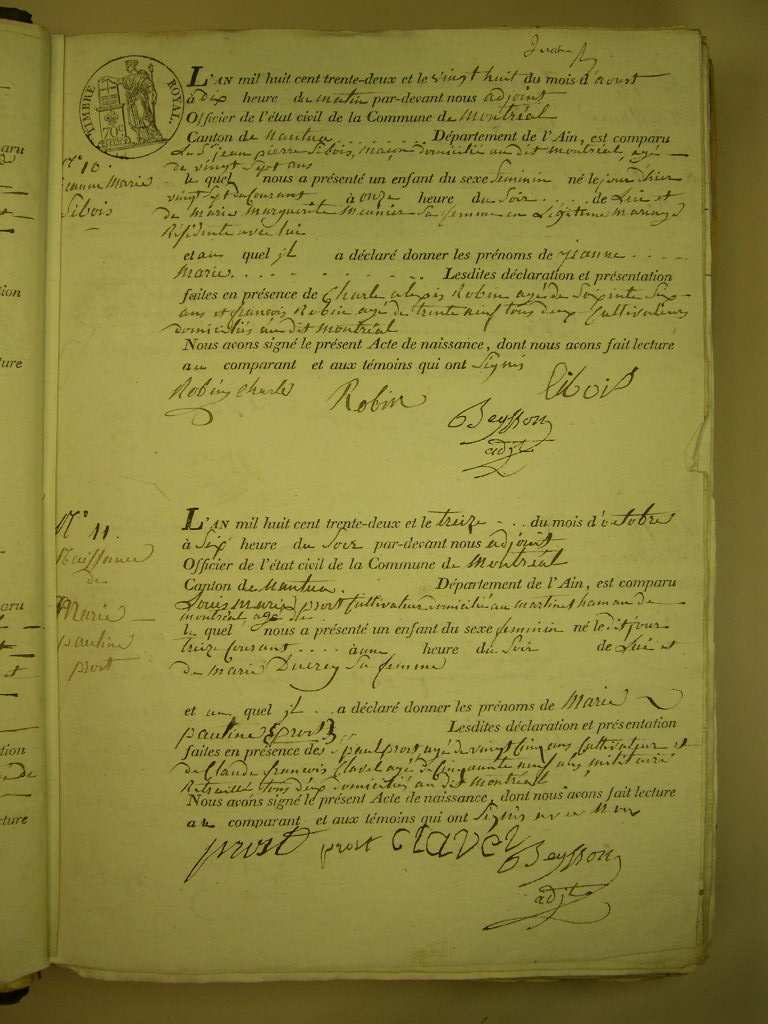 TIMBRE ROYAL.
70c
L'AN mil huit cent trente-deux et le vingt huit du mois d'aoust
à dix heure du matin par-devant nous adjoint
Officier de l'état civil de la Commune de Montréal
Canton de Nantua Département de l'Ain, est comparu
Le Sr jean pierre Sibois, maçon domicilié au dit montréal, agé
de vingt Sept ans
N° 10.
jeanne Marie
Sibois
le quel nous a présenté un enfant du sexe feminin né le jour d'hier
vingt Sept du Courant à onze heure du Soir de Lui et
de Marie Marguerite Meunier Sa femme en Légitime Mariage
Résidente avec lui
et au quel jl a déclaré donner les prénoms de jeanne
Marie. Lesdites déclaration et présentation
faites en présence de Charle alexis Robin agé de Soixente Six
ans et françois Robin agé de trente neuf tous deux Cultivateurs
domiciliés au dit Montréal
Nous avons signé le présent Acte de naissance, dont nous avons fait lecture
au comparant et aux témoins qui ont Signés
Robin Charle Robin Sibois
Beysson
adjt
N° 11.
Naissance
de
Marie
pauline
prost
L'AN mil huit cent trente-deux et le treize du mois d'octobre
à Six heure du Soir par-devant nous adjoint
Officier de l'état civil de la Commune de Montréal
Canton de Nantua. Département de l'Ain, est comparu
Louis Marie prost Cultivateur domicilié au martinet hameau de
montréal agé de
le quel nous a présenté un enfant du sexe feminin né le dit jour
treize Courant à une heure du Soir de Lui et
de Marie Ducrey Sa femme
et au quel jl a déclaré donner les prénoms de Marie
pauline prost Lesdites déclaration et présentation
faites en présence de paul prost agé de vingt Cinq ans Cultivateur et
de Claude françois Clavel agé de Cinquante neuf ans militaire
Retraité, tous deux domiciliés au dit Montréal
Nous avons signé le présent Acte de naissance, dont nous avons fait lecture
au comparant et aux témoins qui ont Signés avec Nous
prost prost Clavel Beysson
adjt